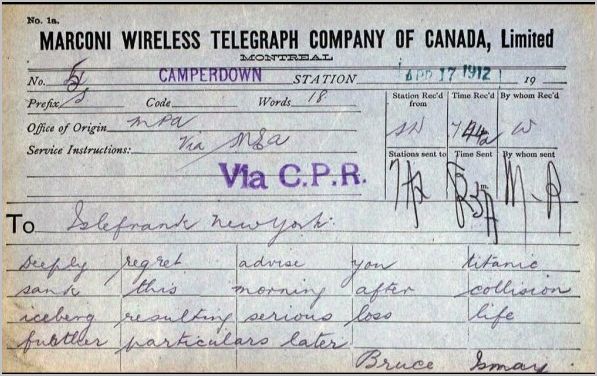 No. 1a.
MARCONI WIRELESS TELEGRAPH COMPANY OF CANADA, Limited
MONTREAL
No. 5 CAMPERDOWN STATION APR 17 1912 19
Prefix S Code Words 18.
Station Rec'd from Time Rec'd By whom Rec'd
Office of Origin MPA
Via MEA
Service Instructions:
W
Stations sent to Time Sent By whom sent
Via C.P.R.
To Islefrank New York.
Deeply regret advise you titanic
sank this morning after collision
iceberg resulting serious loss life
further particulars later
Bruce Ismay